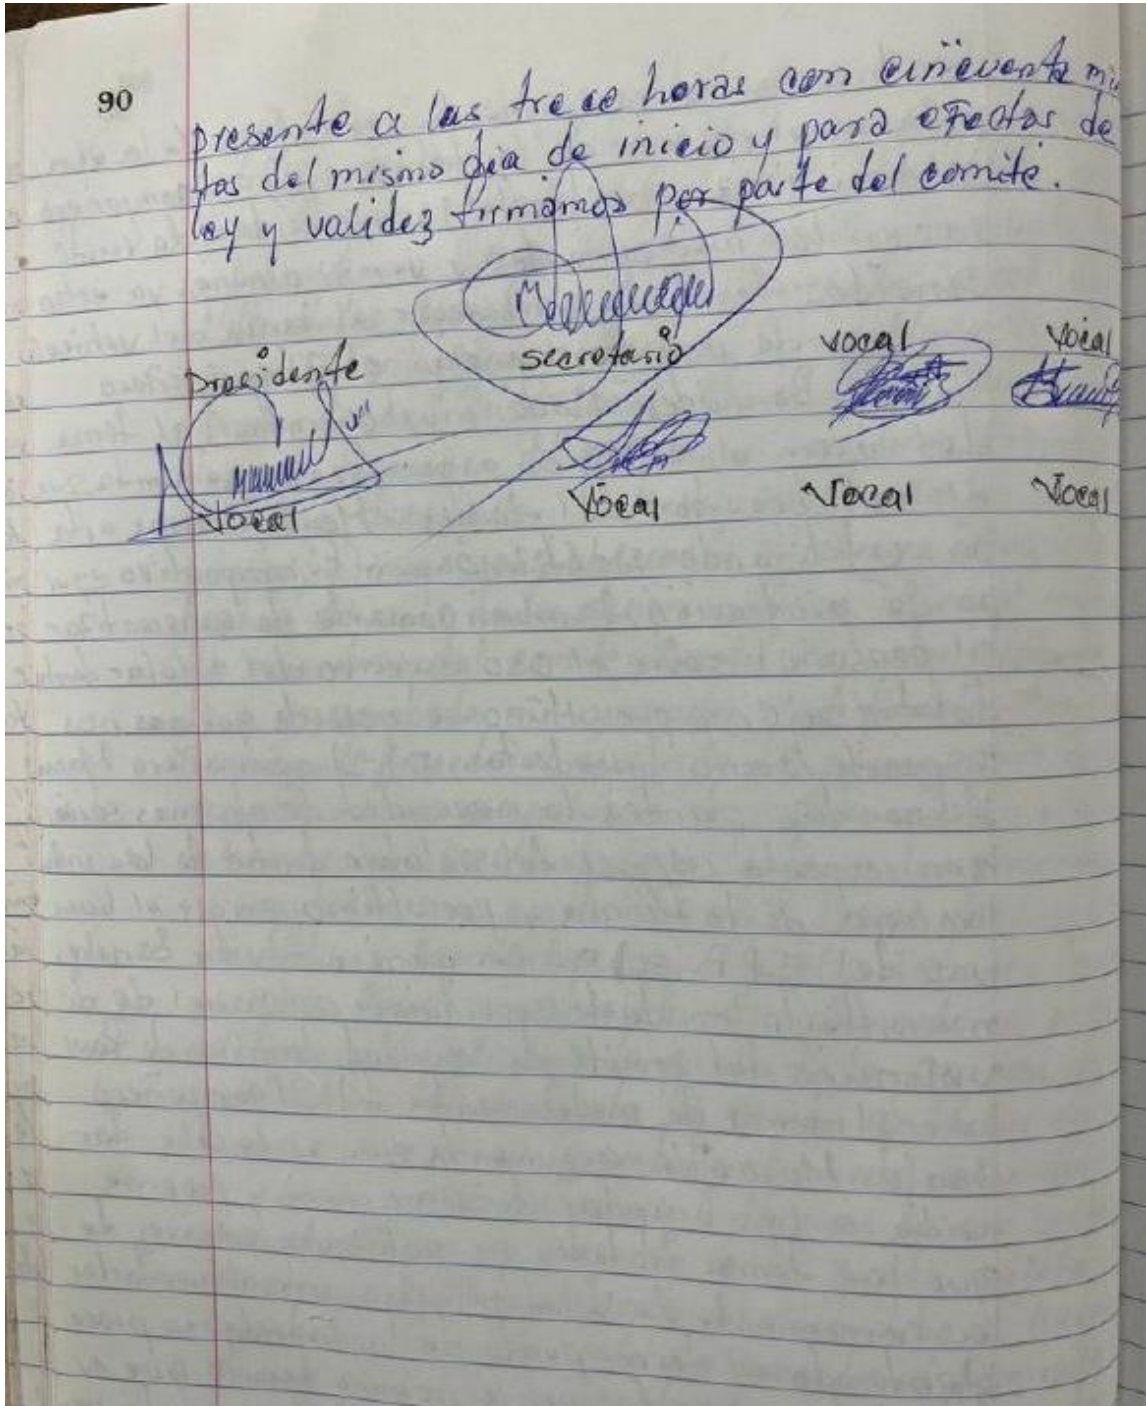 90
presente a las trece horas con cincuenta mi
tos del mismo dia de inicio y para efectos de
ley y validez firmamos por parte del comite.
presidente secretario vocal vocal
vocal vocal vocal vocal